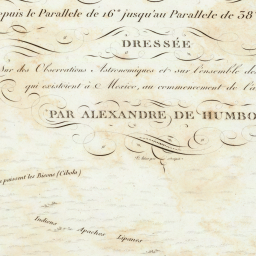 epuis le Parallele de 16° jusqu'au Parallele de 38°
DRESSÉE
Sur des Observations Astronomiques et sur l'ensemble des
qui existoient à Mexico, au commencement de l'a
PAR ALEXANDRE DE HUMBO
paissent les Bisons (Cibola)
Indiens Apaches Lipanes